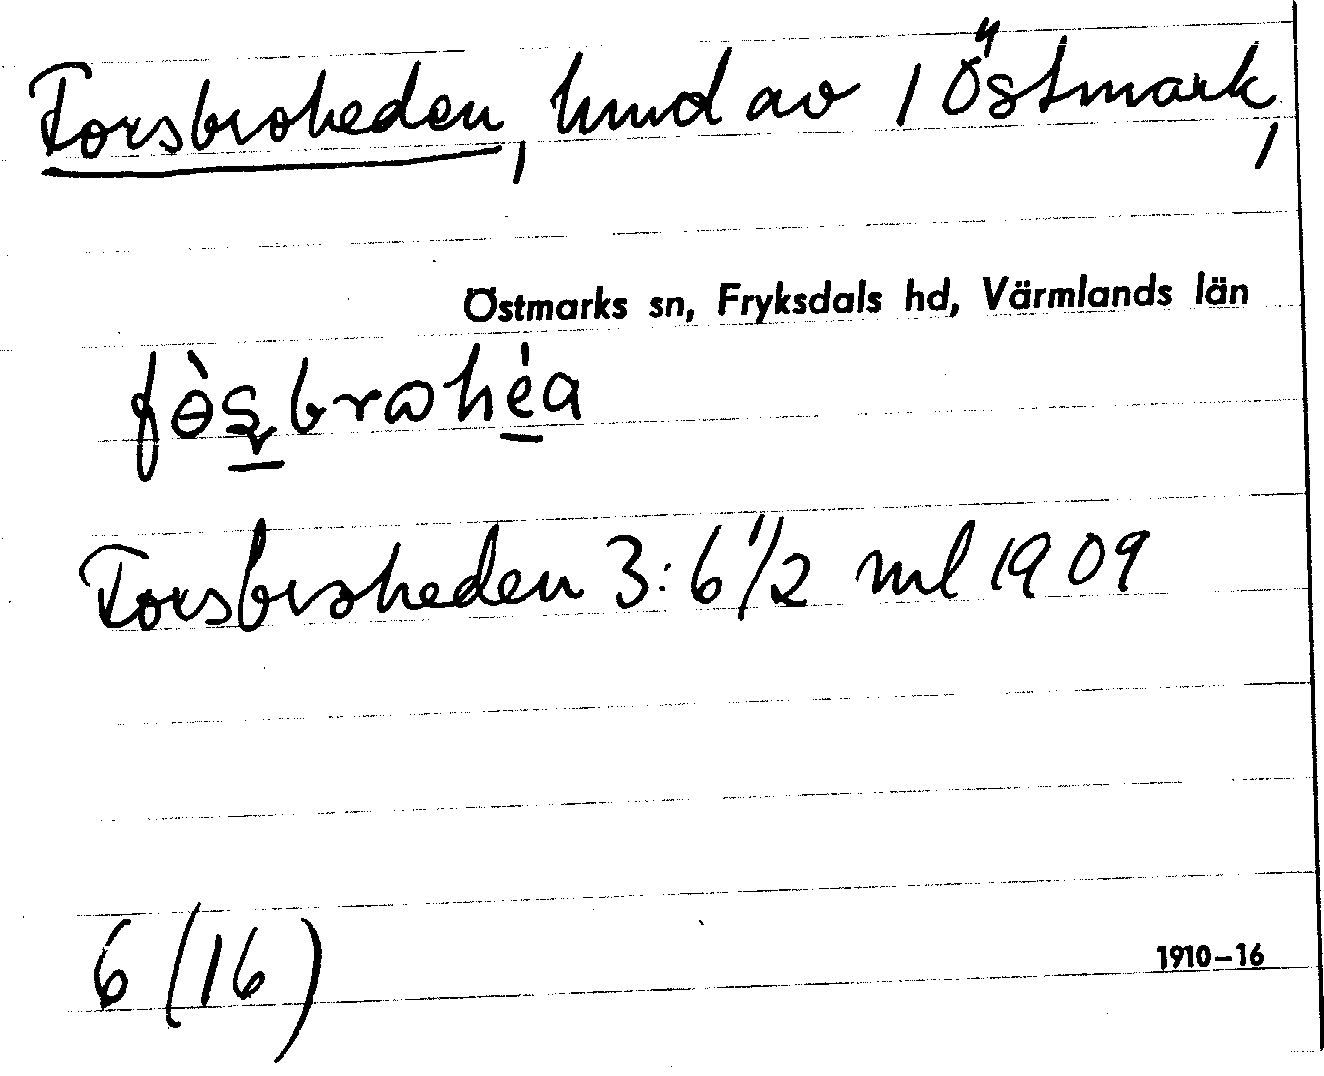 Forsbroheden, hmd av 1 Östmark,
Östmarks sn, Fryksdals hd, Värmlands län
fɵ̀ʂbrωhéa
Forsbroheden 3: 6 1/2 ml 1909
6 (16)
1910–16